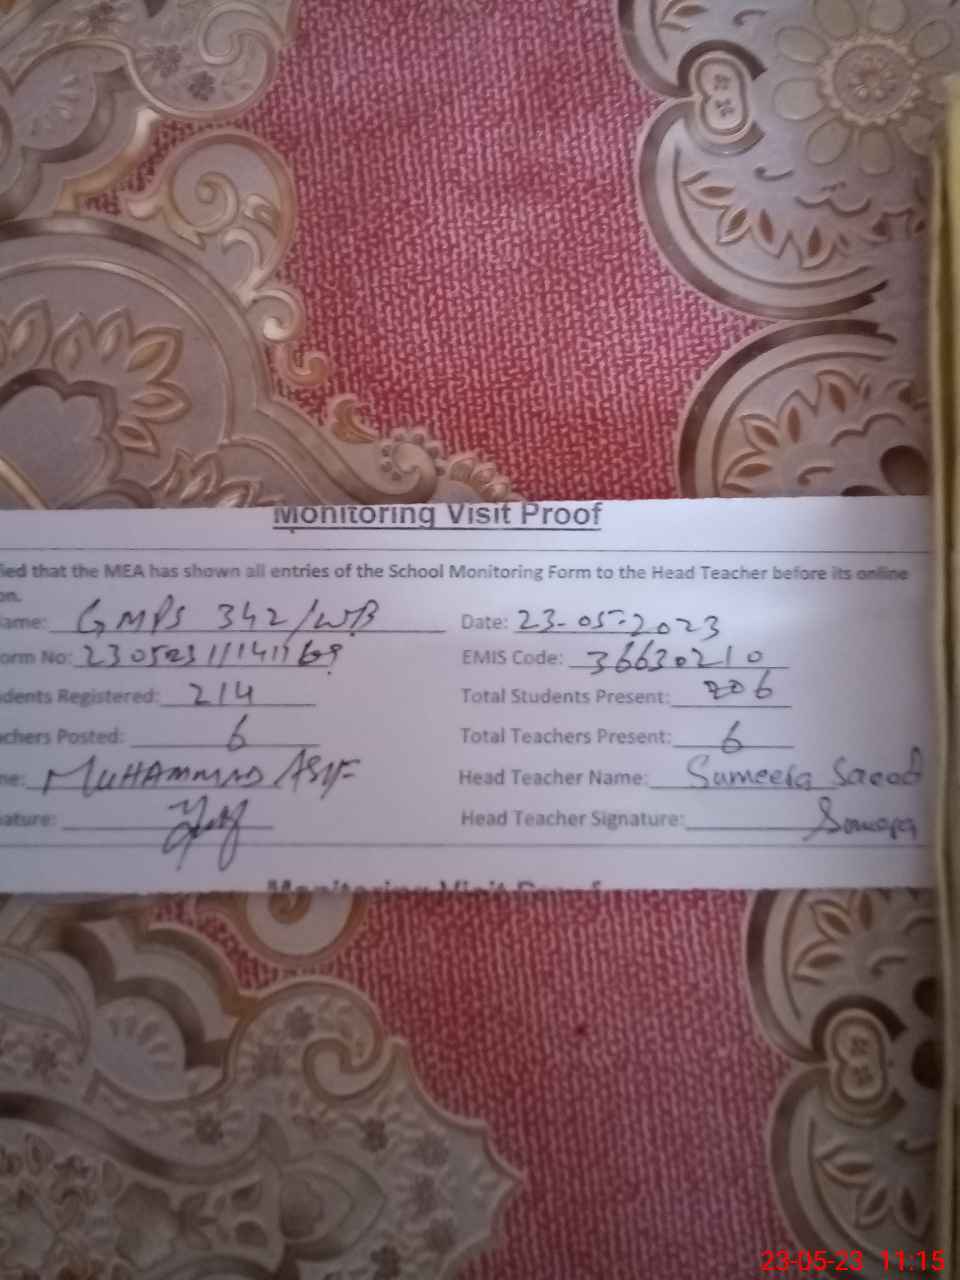 Monitoring Visit Proof
fied that the MEA has shown all entries of the School Monitoring Form to the Head Teacher before its online
on.
ame: GMPS 342/WB Date: 23-05-2023
orm No: EMIS Code: 36630210
dents Registered: 214 Total Students Present: 206
chers Posted: 6 Total Teachers Present: 6
ne: MUHAMMAD ASIF Head Teacher Name: Sumeera Saeed
ature: Head Teacher Signature:
Monitoring Visit Proof
23-05-23 11:15